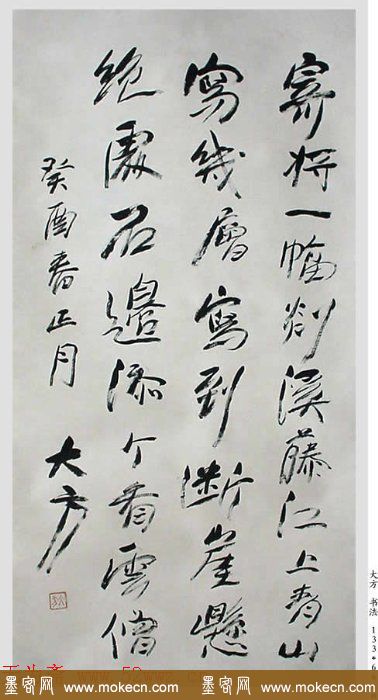 寄将一幅剡溪藤江上青山
寫幾層寫到断崖懸
絶處石邊添个看雲僧
癸酉春正月
大方
大方 书法 133*6
墨客网 www.mokecn.com
墨客网 www.mokecn.com